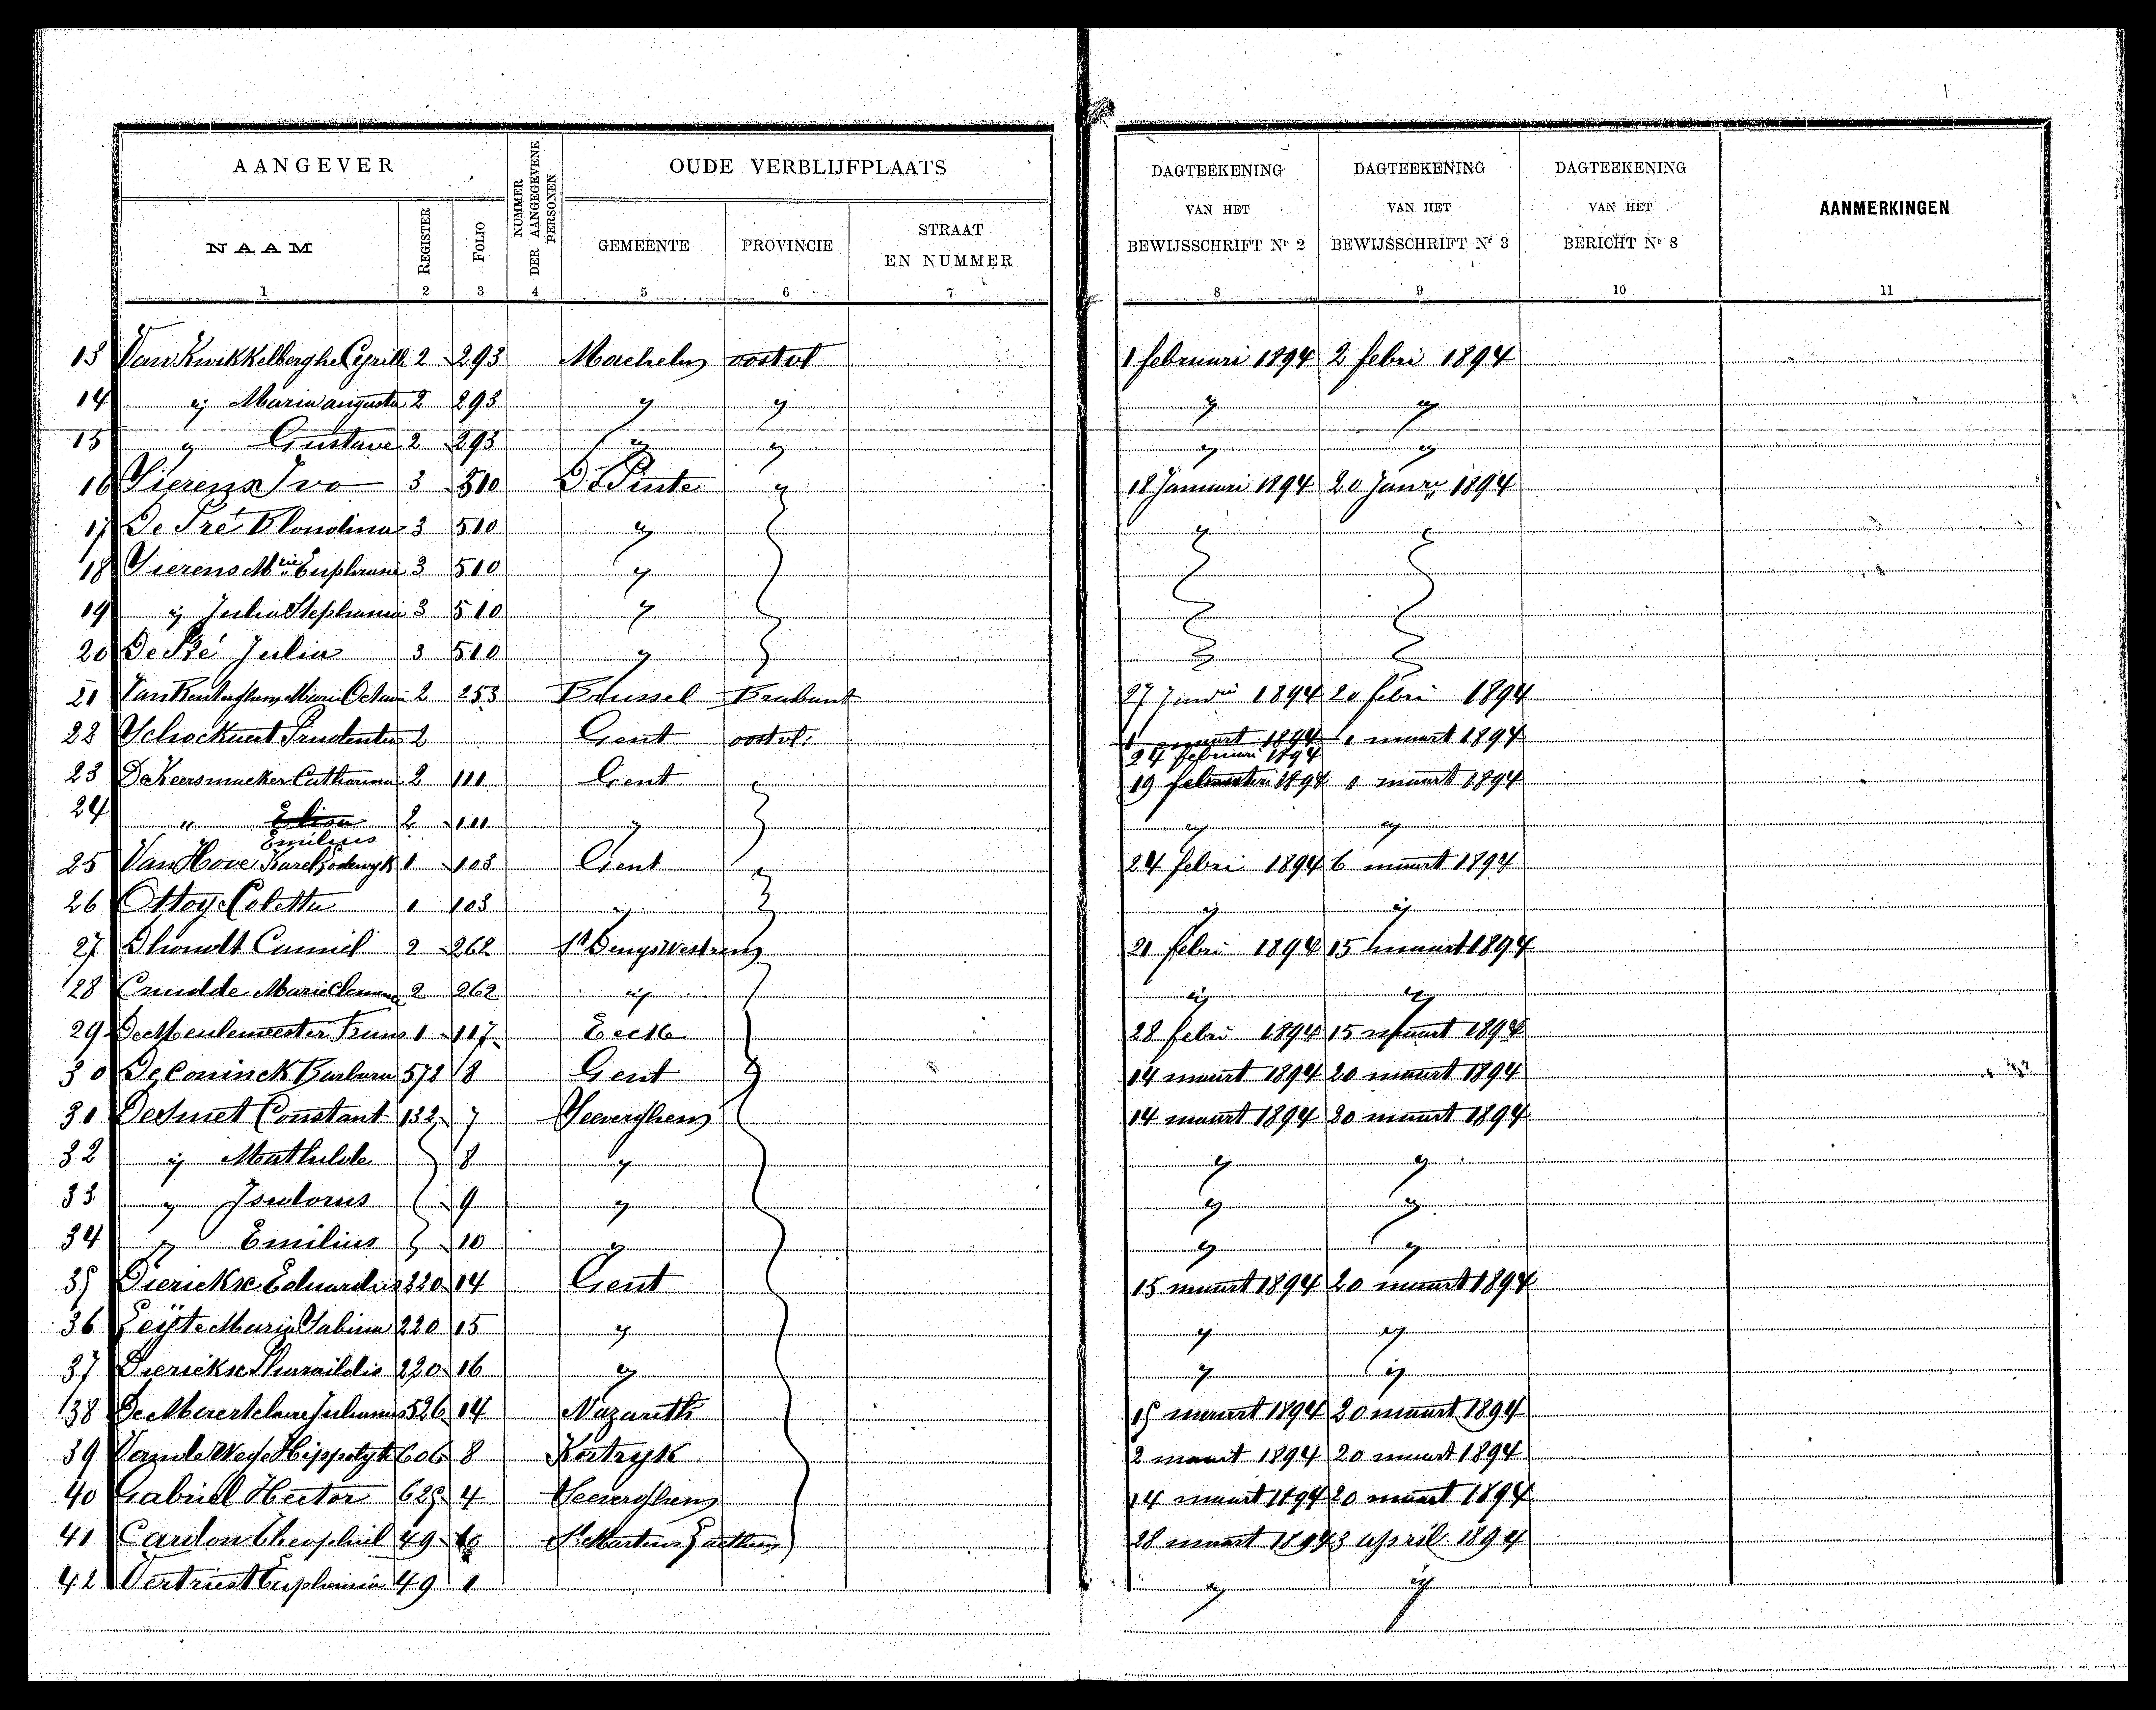 AANGEVER
NUMMER DER AANGEGEVENE PERSONEN
OUDE VERBLIJFPLAATS
DAGTEEKENING VAN HET BEWIJSSCHRIFT Nr 2
DAGTEEKENING VAN HET BEWIJSSCHRIFT Nr 3
DAGTEEKENING VAN HET BERICHT Nr 8
AANMERKINGEN
NAAM REGISTER FOLIO GEMEENTE PROVINCIE STRAAT EN NUMMER
1 2 3 4 5 6 7 8 9 10 11
13 Van Kwikkelberghe Cyrille 2 293 Machelen oostvl 1 februari 1894 2 febri 1894
14 ij Maria augusta 2 293 ij ij ij ij
15 ij Gustave 2 293 ij ij ij ij
16 Sierens Ivo 3 510 De Pinte ij 18 Januari 1894 20 Janri 1894
17 De Pré Blondina 3 510 ij ij
18 Sierens Mrie Euphrasie 3 510 ij
19 ij Julia Stephanie 3 510 ij
20 De Pré Julia 3 510 ij
21 Van Renterghem Marie Octavie 2 253 Brussel Brabant 27 1894 20 febri 1894
22 Schockaert Prudentia 2 Gent oostvl. 1 maart 1894 1 maart 1894
24 februari 1894
23 De Keersmaeker Catharina 2 111 Gent 19 februari 1894 1 maart 1894
24 " Elisa 2 111 ij ij ij
Emilius
25 Van Hove Karel Lodewyk 1 103 Gent 24 febri 1894 6 maart 1894
26 Ottoy Coletta 1 103 ij ij ij
27 Dhondt Camiel 2 262 St Denys westrem 21 febri 1894 15 maart 1894
28 Cnudde Marie Clemence 2 262 ij ij ij
29 De Meulemeester Frans 1 117 Eecke 28 febri 1894 15 maart 1894
30 De Coninck Barbara 572 8 Gent 14 maart 1894 20 maart 1894
31 De Smet Constant 132 7 Seeverghem 14 maart 1894 20 maart 1894
32 ij Mathilde 8 ij ij ij
33 ij Isidorus 9 ij ij ij
34 ij Emilius 10 ij ij ij
35 Dierickx Eduardus 220 14 Gent 15 maart 1894 20 maart 1894
36 Leijte Maria Sabina 220 15 ij ij ij
37 Dierickx 220 16 ij ij ij
38 Julianus 526 14 Nazareth 15 maart 1894 20 maart 1894
39 Vande Wege Hippolyte 606 8 Kortryk 2 maart 1894 20 maart 1894
40 Gabriel Hector 625 4 Seeverghem 14 maart 1894 20 maart 1894
41 Cardon Theophiel 49 St Martens Laethem 28 maart 1894 3 april 1894
42 Vertriest Euphemia 49 1 ij ij